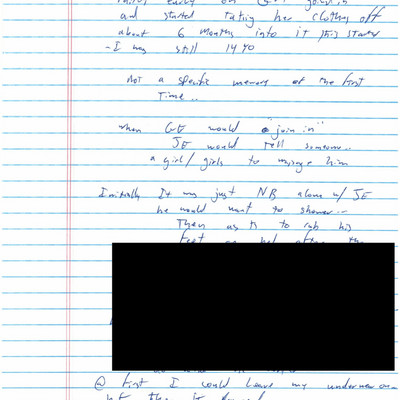 early on
and started taking her clothes off
about 6 months into it this started
- I was still 14 yo
Not a specific memory of the first
time..
when GE would "join in"
JE would tell someone..
a girl/girls to massage him
Initially It was just NB alone w/ JE
he would want to shower..
Then ask to rub his
feet
@ first I could leave my underwear on